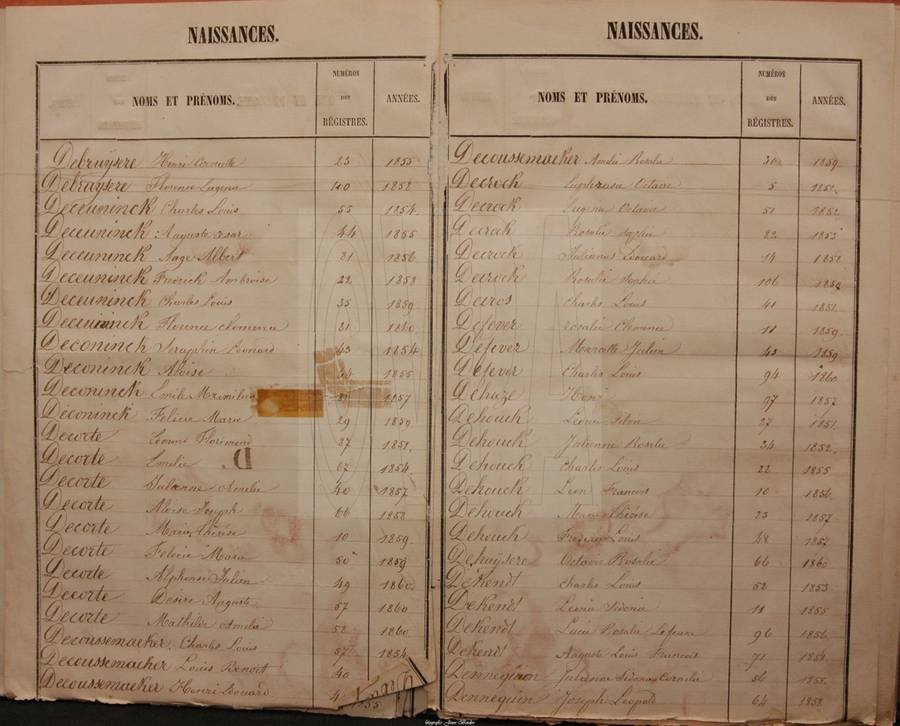 NAISSANCES.
NOMS ET PRÉNOMS. NUMÉROS DES RÉGISTRES. ANNÉES.
Debruysere Henri Corneille 23 1855
Debruysere Florence Eugenia 100 1858
Deceuninck Charles Louis 55 1854
Deceuninck Auguste Cesar 44 1855
Deceuninck Albert 31 1856
Deceuninck Fredrick Ambroise 22 1858
Deceuninck Charles Louis 35 1859
Deceuninck Florence Clemence 21 1860
Deconinch Seraphin Leonard 43 1854
Deconinck Aloise 1855
Deconinck Emile 1857
Deconinck Felicie Marie 29 1859
Decorte Edouard Florimond 27 1851
Decorte Emelie 67 1854
Decorte Amelie 40 1857
Decorte Aloise Joseph 66 1858
Decorte Marie Thérèse 10 1859
Decorte Felicie Marie 50 1859
Decorte Alphonse Julien 49 1860
Decorte Desiré Auguste 57 1860
Decorte Mathilde Amelie 58 1860
Decoussemaeker Charles Louis 57 1854
Decoussemaeker Louis Benoit 40
Decoussemaeker Henri Edouard 4 55
NAISSANCES.
NOMS ET PRÉNOMS. NUMÉROS DES RÉGISTRES. ANNÉES.
Decoussemaeker Amelie Rosalie 30 1859
Decrock Euphrasie Octavie 5 1851
Decrock Eugenie Octavie 51 1852
Decrok Rosalie Sophie 82 1853
Decrock Julianus Edouard 14 1858
Decrock Rosalie Sophie 106
Decros Charles Louis 41 1851
Defever Rosalie Clemence 11 1859
Defever Marcelle Julien 43 1859
Defever Charles Louis 94 1860
Dehaze Henri 97 1857
Dehouck Leonie 27 1851
Dehouck Julienne Rosalie 34 1852
Dehouck Charles Louis 22 1855
Dehouck Leon Francois 10 1856
Dehouck Marie Thérèse 23 1857
Dehouck Frederic Louis 48 1857
Dehuysere Octavie Rosalie 66 1860
Dekendt Charles Louis 52 1853
Dekendt Leonie Sidonie 18 1855
Dekendt Lucie Rosalie 96 1856
Dekendt August Louis Francois 71 1858
Dennequin Julienne Sidonie Cornelie 56
Dennequin Joseph Leopold 64 1858